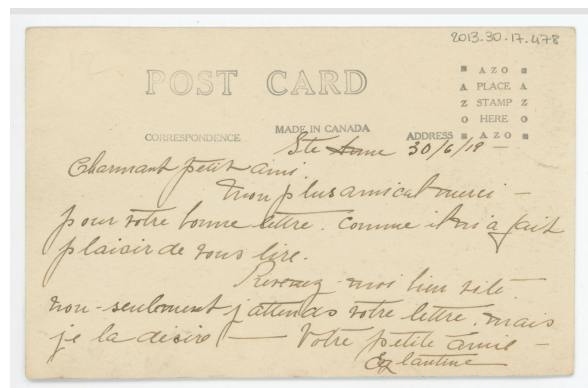 2013.30.17.478
POST CARD
AZO
PLACE
STAMP
HERE
AZO
CORRESPONDENCE
MADE IN CANADA
ADDRESS
Ste Anne 30/6/19 —
Charmant petit ami,
mon plus amical merci —
pour votre bonne lettre. Comme il m'a fait
plaisir de vous lire.
moi bien vite
non-seulement j'attends votre lettre, mais
je la désire — Votre petite amie —
Eglantine